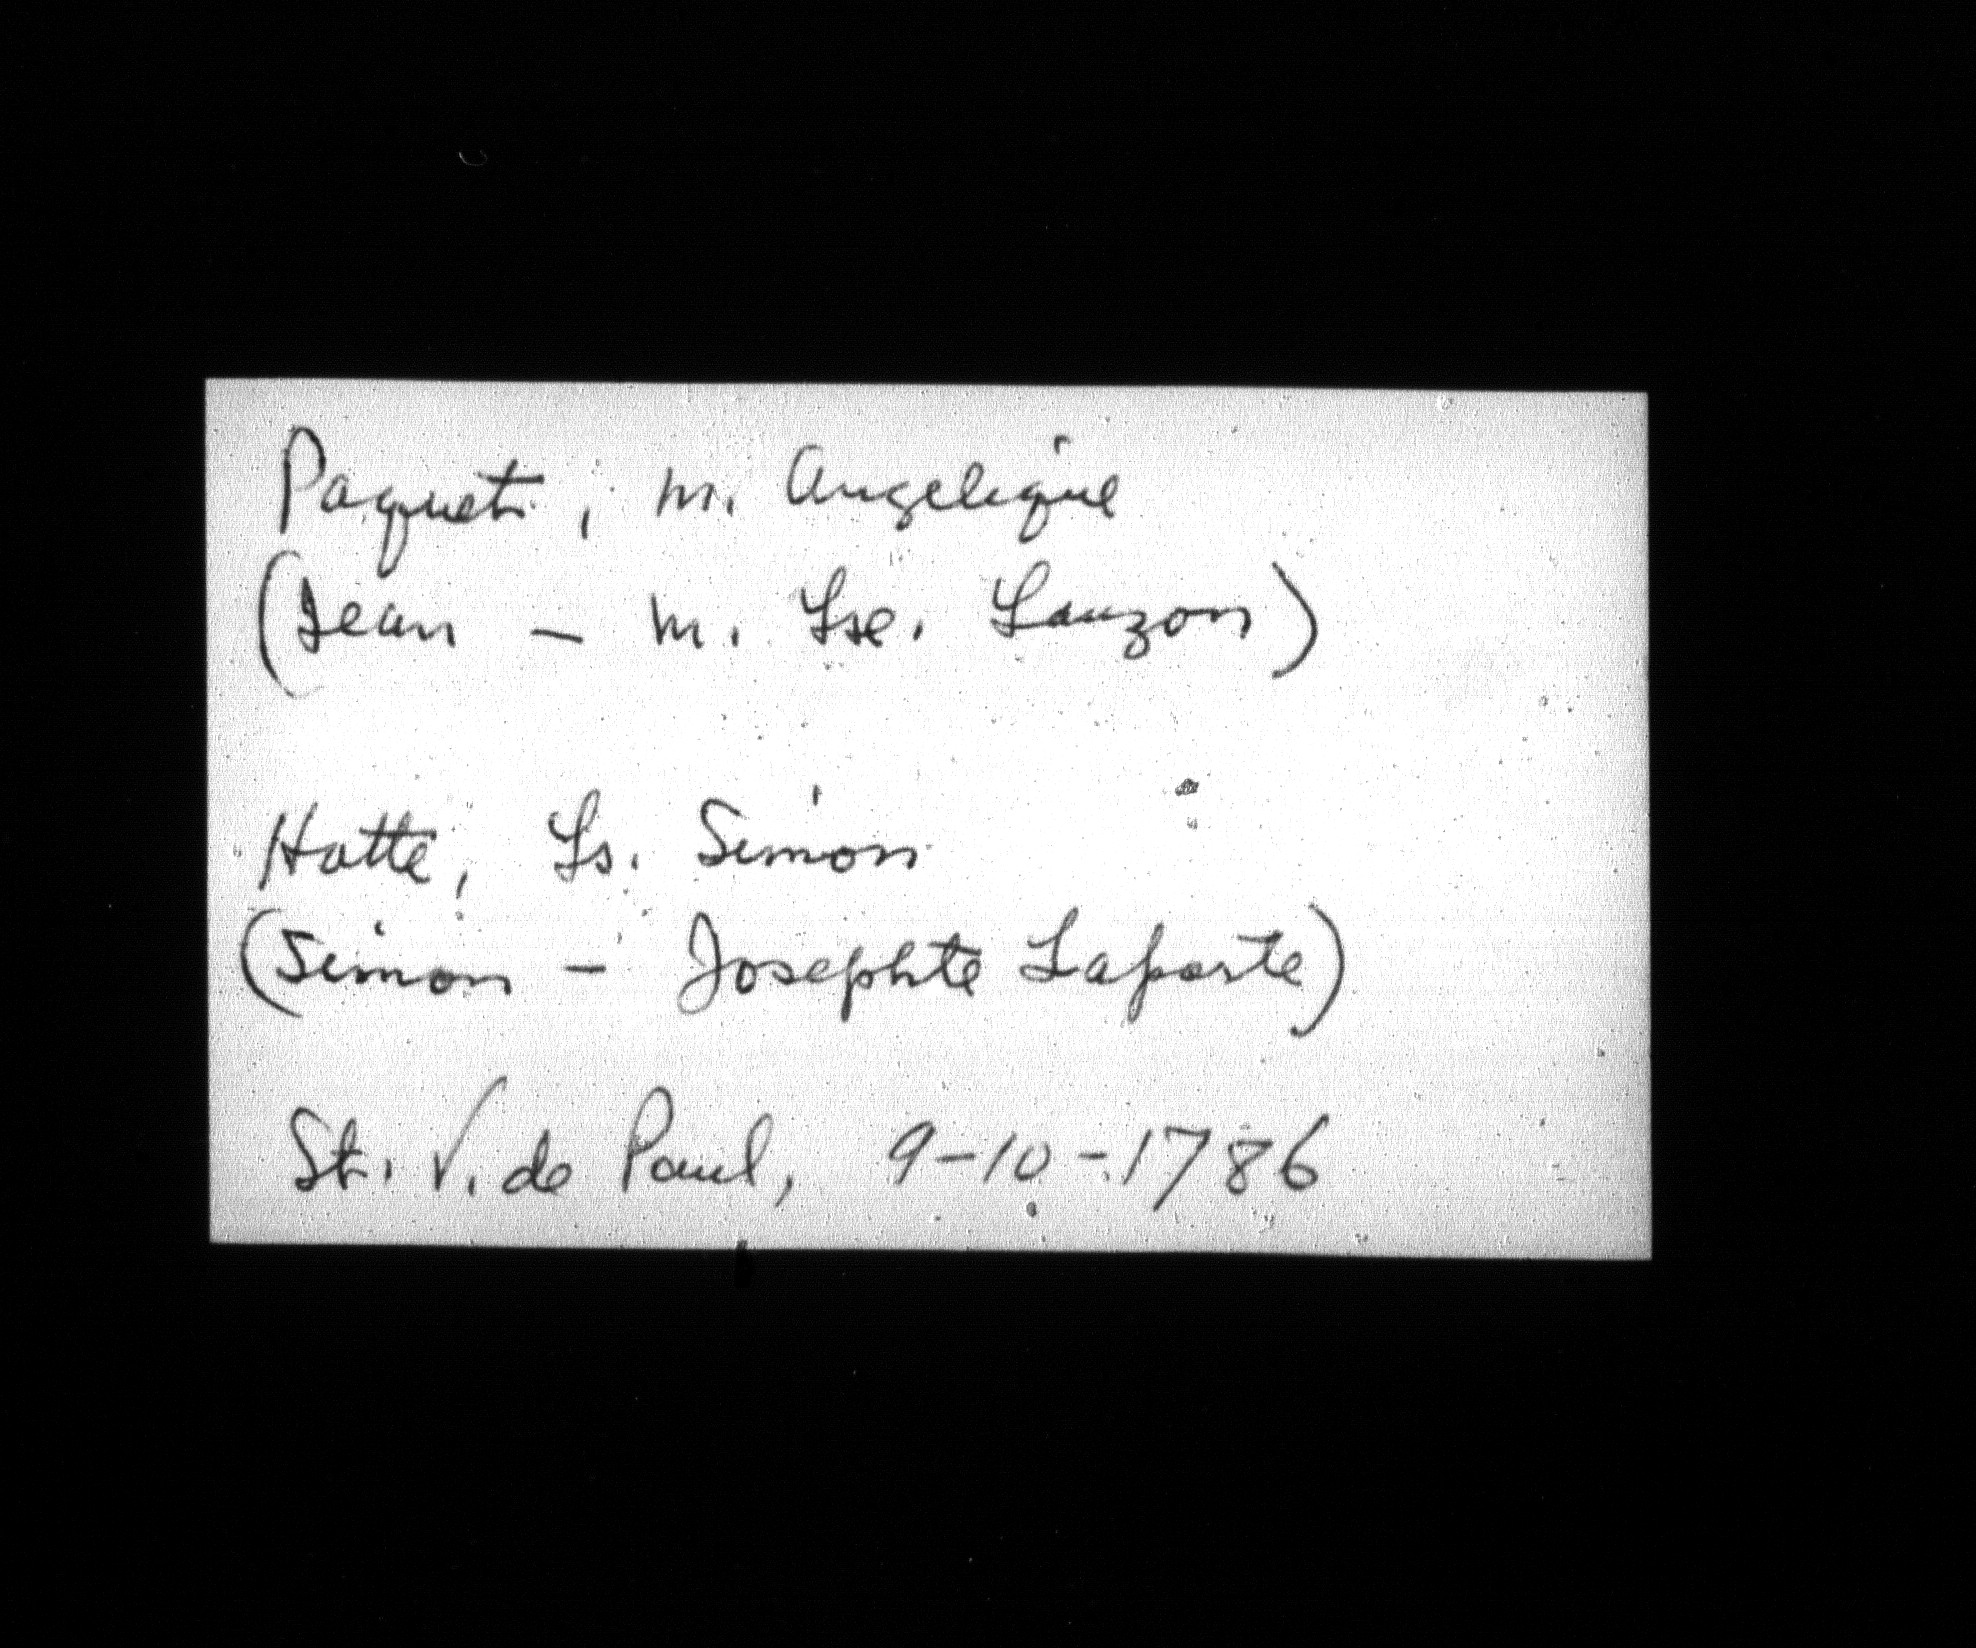 Paquet, M. Angelique
(Jean - M. Lse. Lauzon)
Hotte, Ls. Simon
(Simon - Josephte Laporte)
St. V. de Paul, 9-10-1786